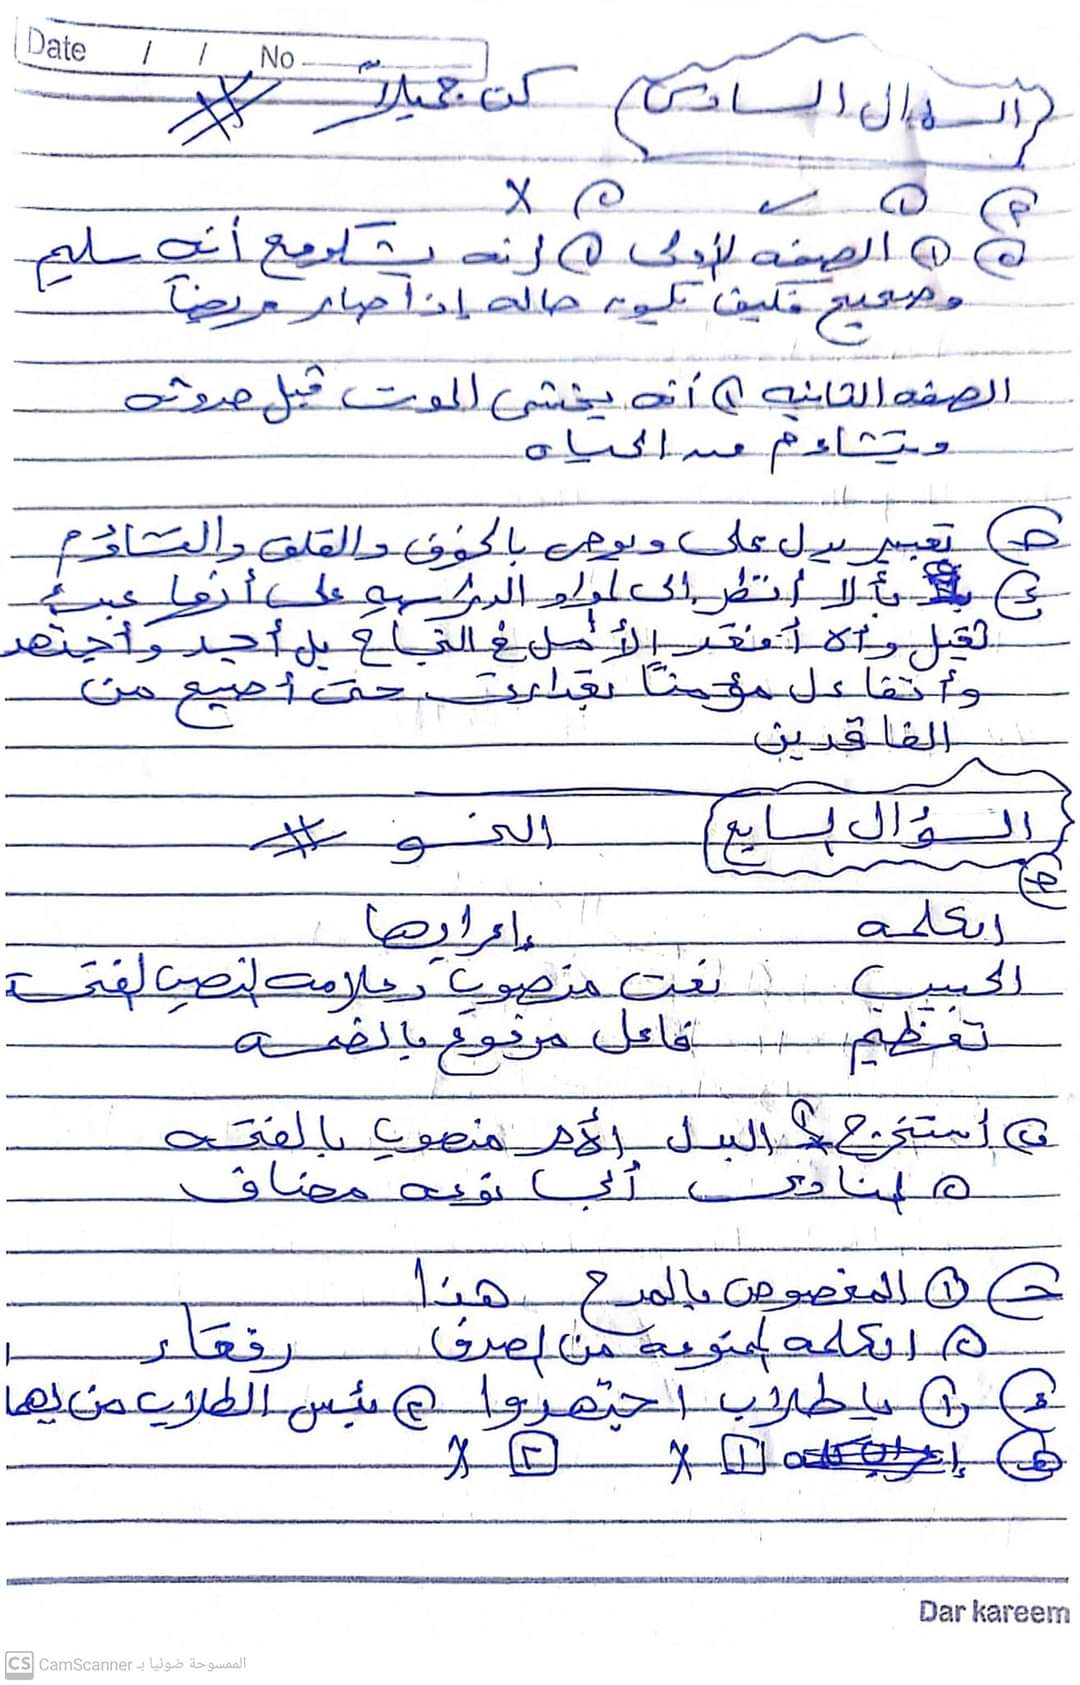 Date / / No
السؤال السادس كن جميلاً #
م ① ✓ ② X
① الصفه الأولى ① إنه يشكو مع أنه سليم
وصحيح فكيف تكون حاله إذا صار مريضاً
الصفه الثانيه ① أنه يخشى الموت قبل حدوثه
ويتشاءم من الحياه
تعبير يدل على ويوحى بالخوف والقلق والتشاؤم
بألا أنظر إلى المواد الدراسيه على أنها عبء
ثقيل وألا أفقد الأمل في النجاح بل أجد وأجتهد
وأتفاءل مؤمناً بقدراتى حتى أصبح من
السؤال السابع النحو #
الكلمه إعرابها
الحبيب نعت منصوب وعلامه النصب الفتحه
تعظيم فاعل مرفوع بالضمه
أستخرج ① البدل الأم منصوب بالفتحه
② المنادى أبا نوعه مضاف
① المخصوص بالمدح هذا
② الكلمه الممنوعه من الصرف رفعاء
① يا طلاب اجتهدوا ② بئس الطلاب من يهمل
1 X 2 X
Dar kareem
CS CamScanner الممسوحة ضوئيا بـ